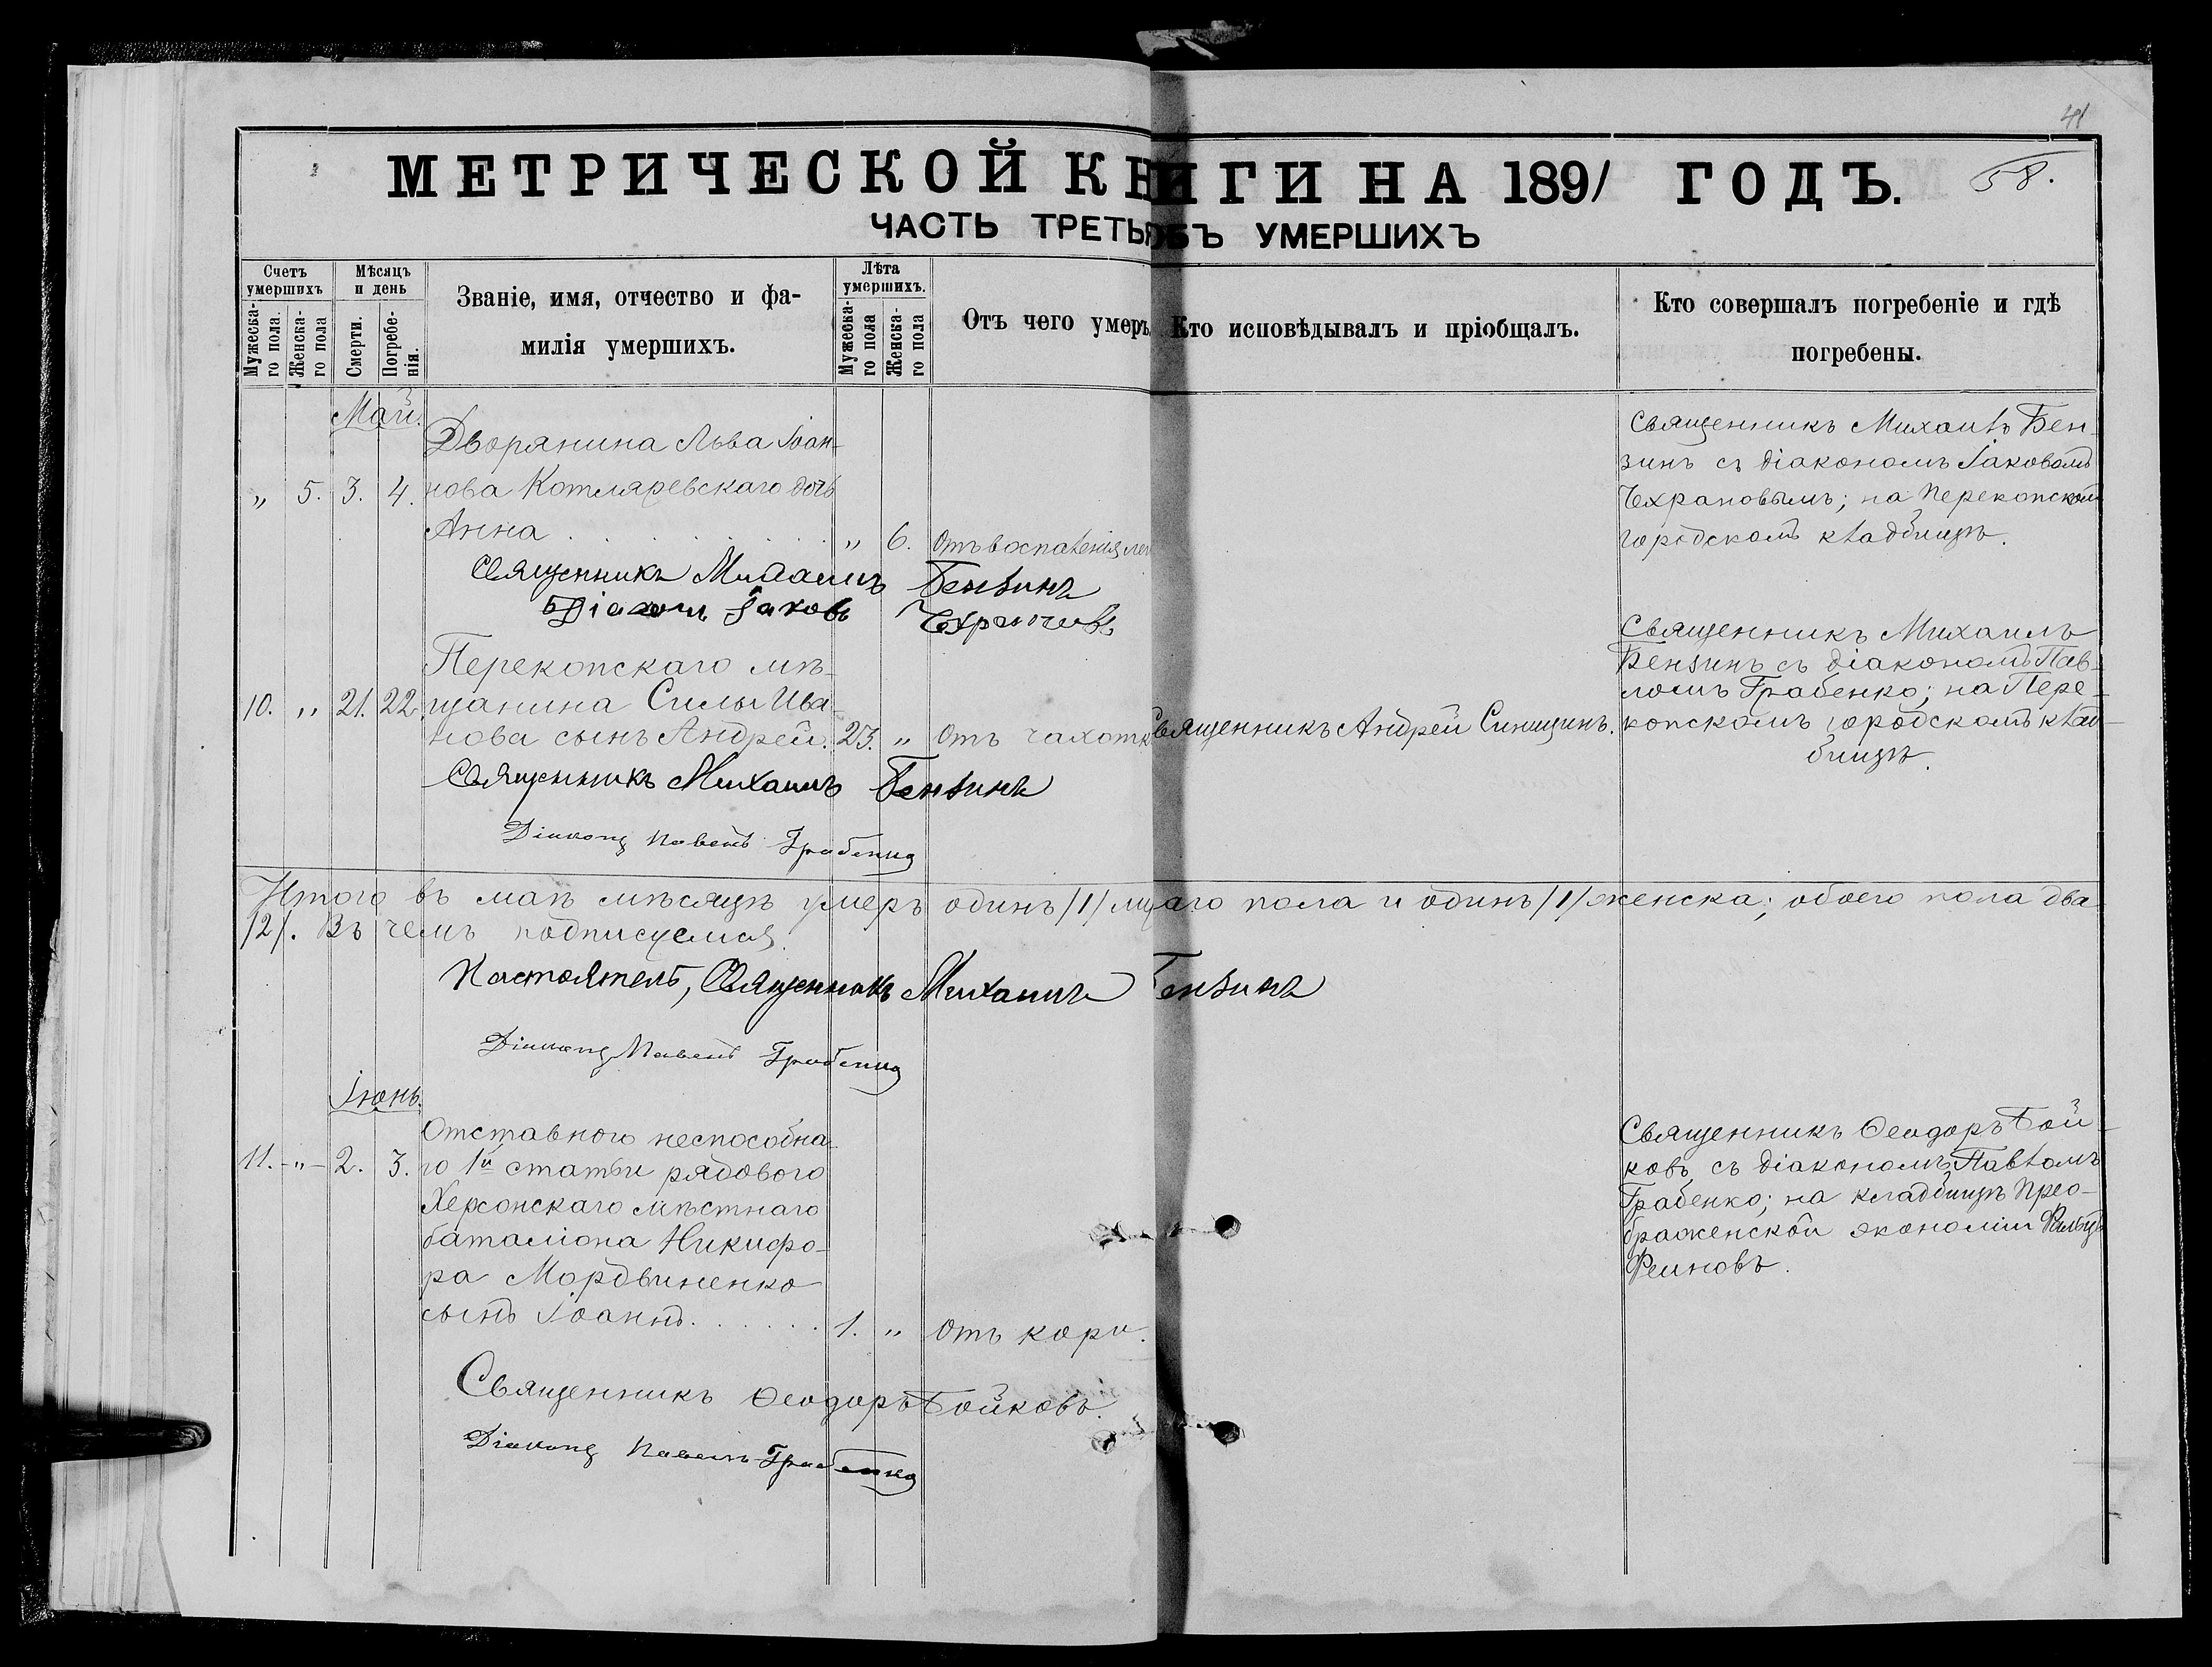 41
МЕТРИЧЕСКОЙ КНИГИ НА 1891 ГОДЪ.
58.
ЧАСТЬ ТРЕТЬЯ ОБЪ УМЕРШИХЪ
Счетъ умершихъ
Мужеска-
го пола.
Женска-
го пола
Мѣсяцъ и день
Смерти.
Погребе-
нія.
Званіе, имя, отчество и фа-
милія умершихъ.
Лѣта умершихъ.
Мужеска-
го пола
Женска-
го пола
Отъ чего умеръ
Кто исповѣдывалъ и пріобщалъ.
Кто совершалъ погребеніе и гдѣ
погребены.
Май.
Дворянина Льва Іоан-
„ 5. 3. 4. нова Котляревскаго дочь
Анна . . . . . . „ 6. Отъ воспаленія лег
Священникъ Михаилъ Бен-
зинъ съ діакономъ Іаковомъ
на Перекопском
городскомъ кладбищѣ.
Священникъ Михаилъ Бензинъ
Діаконъ Іаковъ
Перекопскаго мѣ-
10. „ 21. 22. щанина Силы Ива-
нова сынъ Андрей. 23. „ Отъ чахотк
Священникъ Андрей Синицинъ.
Священникъ Михаилъ
Бензинъ съ діакономъ Пав-
ломъ Грабенко; на Пере-
копскомъ городскомъ клад-
бищѣ.
Священникъ Михаилъ Бензинъ
Діаконъ Павелъ Грабенко
Итого въ маѣ мѣсяцѣ умеръ одинъ /1/ мужскаго пола и одинъ /1/ женска; обоего пола два
/2/. Въ чемъ подписуемся
Настоятель, Священникъ Михаилъ Бензинъ
Діаконъ Павелъ Грабенко
Іюнь.
Отставного неспособна-
11. - „ - 2. 3. го 1й статьи рядового
Херсонскаго мѣстнаго
баталіона Никифо-
ра Мордвиненко
сынъ Іоаннъ. . . . . . 1. „ Отъ кори.
Священникъ Ѳеодоръ Бой-
ковъ съ діакономъ Павломъ
Грабенко; на кладбищѣ Прео-
браженской экономіи Фальцъ
Фейновъ.
Священникъ Ѳеодоръ Бойковъ.
Діаконъ Павелъ Грабенко